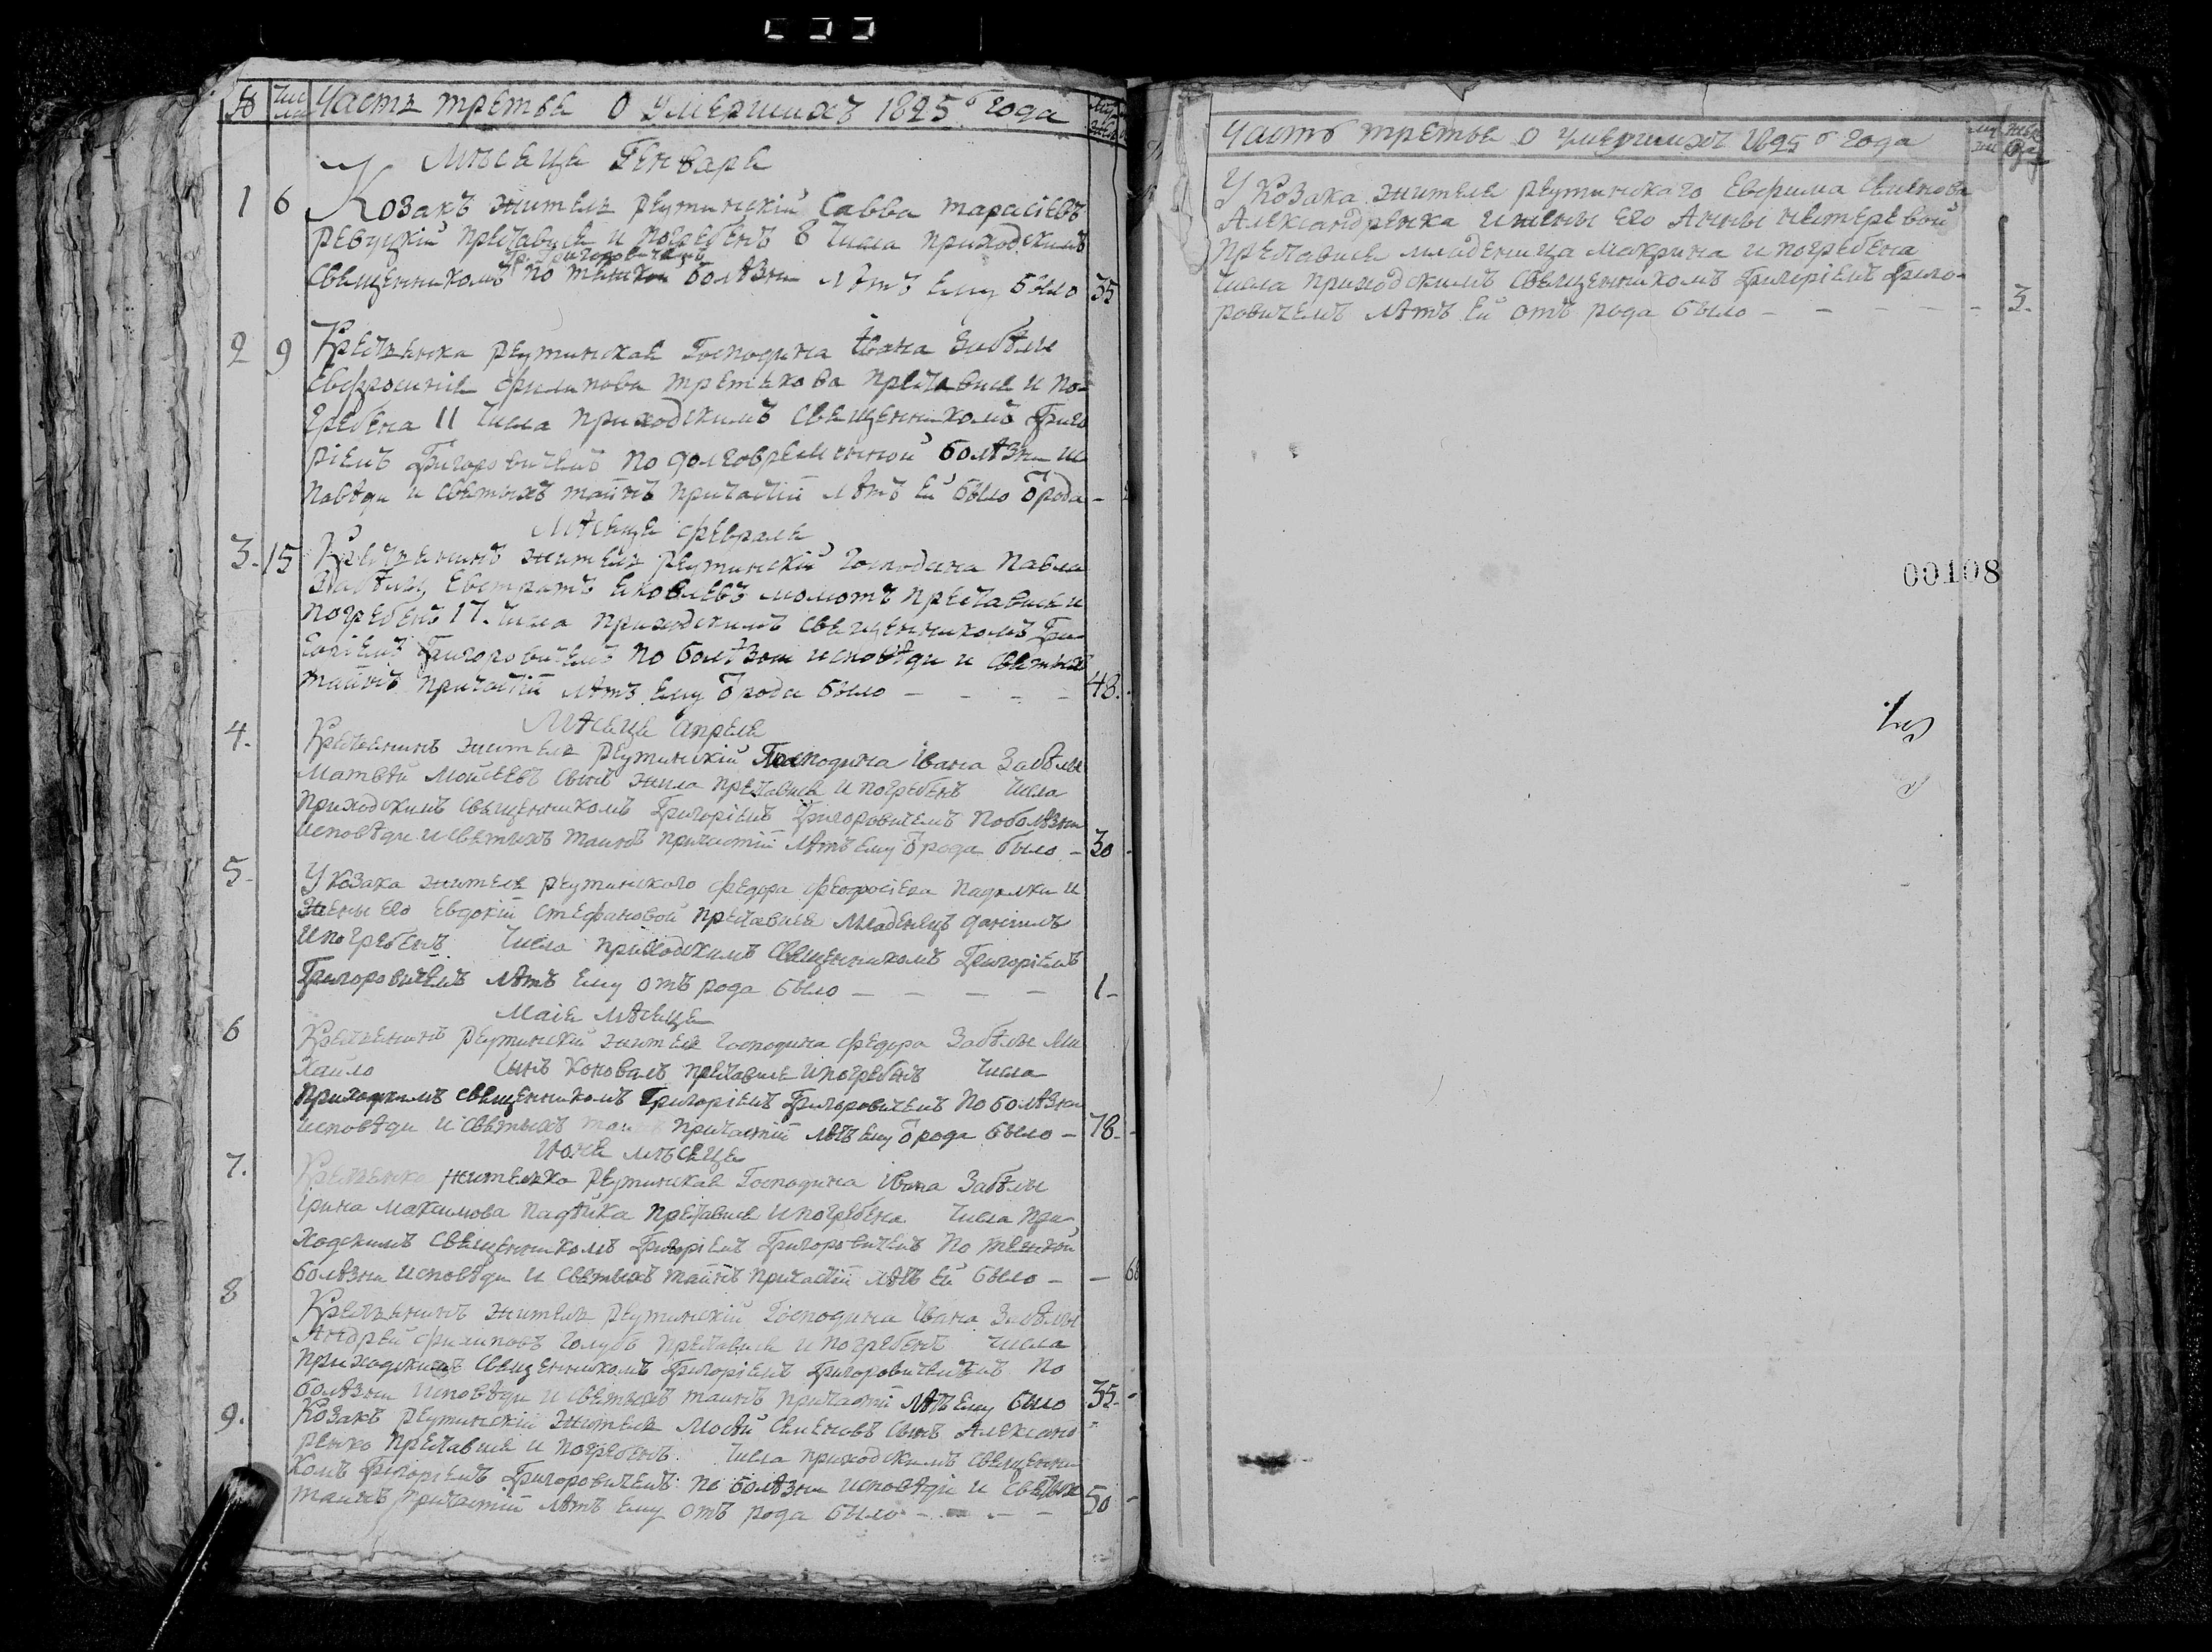 № Чис ла Часть третья О Умершихъ 1825го года муж
Мѣсяца Генваря
1 6 Козакъ житель реутинскій Савва тарасіевъ
ревуцкій преставися и погребенъ 8 числа приходскимъ
Гр: Григоровичемъ
священникомъ по тяжкой болѣзни лѣтъ ему было 35
2 9 Крестьянка реутинская Господина Івана Забѣлы
Евфросинія филипова третякова преставися и по-
гребена 11 числа приходскимъ священникомъ Григо
ріемъ Григоровичемъ по долговременной болѣзни ис
повѣди и святыхъ тайнъ причастіи лѣтъ ей было ѿ рода -
Мѣсяца февраля
3. 15 Крестьянинъ житель реутинскій Господина Павла
Забѣлы, Евстратъ яковлевъ момотъ преставися и
погребенъ 17. числа приходскимъ священникомъ Гри-
горіемъ Григоровичемъ по болѣзни исповѣди и святыхъ
тайнъ причастіи лѣтъ ему ѿ рода было - - - - 48.
Мѣсяца апреля
4. Крестьянинъ житель реутинскій Господина Івана Забѣлы
Матвѣй Мойсеевъ сынъ жила преставися и погребенъ числа
приходскимъ священникомъ Григоріемъ Григоровичемъ по болѣзни
исповѣди и святыхъ таинъ причастіи лѣтъ ему ѿ рода было - 30
5- У козака жителя реутинского федора феодосіева падалки и
жены его Евдокіи стефановой преставися младенецъ даніилъ
и погребенъ числа приходскимъ священникомъ Григоріемъ
Григоровичемъ лѣтъ ему отъ рода было - - - - 1-
Маія мѣсяца
6 Крестьянинъ реутинскій житель господина федора Забѣлы Ми
хайло сынъ Коновалъ преставися и погребенъ числа
приходскимъ священникомъ Григоріемъ Григоровичемъ по болѣзни
исповѣди и святыхъ таинъ причастіи лѣтъ ему ѿ рода было - 78.-
Июня мѣсяца
7. Крестьянка жителька реутинская Господина Івана Забѣлы
ірина максимова падѣйка преставися и погребена числа при-
ходскимъ священникомъ Григоріемъ Григоровичемъ по тяжкой
болѣзни исповѣди и святыхъ тайнъ причастіи лѣтъ ей было - -
8 Крестьянинъ житель реутинскій Господина Івана Забѣлы
Андрей филиповъ голубъ преставися и погребенъ числа
приходскимъ священникомъ Григоріемъ Григоровичемъ по
болѣзни исповѣди и святыхъ таинъ причастіи лѣтъ ему было 35-
9. Козакъ реутинскій житель Мосѣй семеновъ сынъ Александ
ренко преставися и погребенъ. числа приходскимъ священни-
комъ Григоріемъ Григоровичемъ: по болѣзни исповѣди и святыхъ
таинъ причастіи лѣтъ ему отъ рода было - - - - 50 -
Часть третья О умершихъ 1825го года
У козака жителя реутинскаго Евфима семенова
Александренка и жены его Анны нестеревой
преставися младеница макрина и погребена
числа приходскимъ священникомъ Григоріемъ Григо-
ровичемъ лѣтъ ей отъ рода было - - - - - 3.
00108